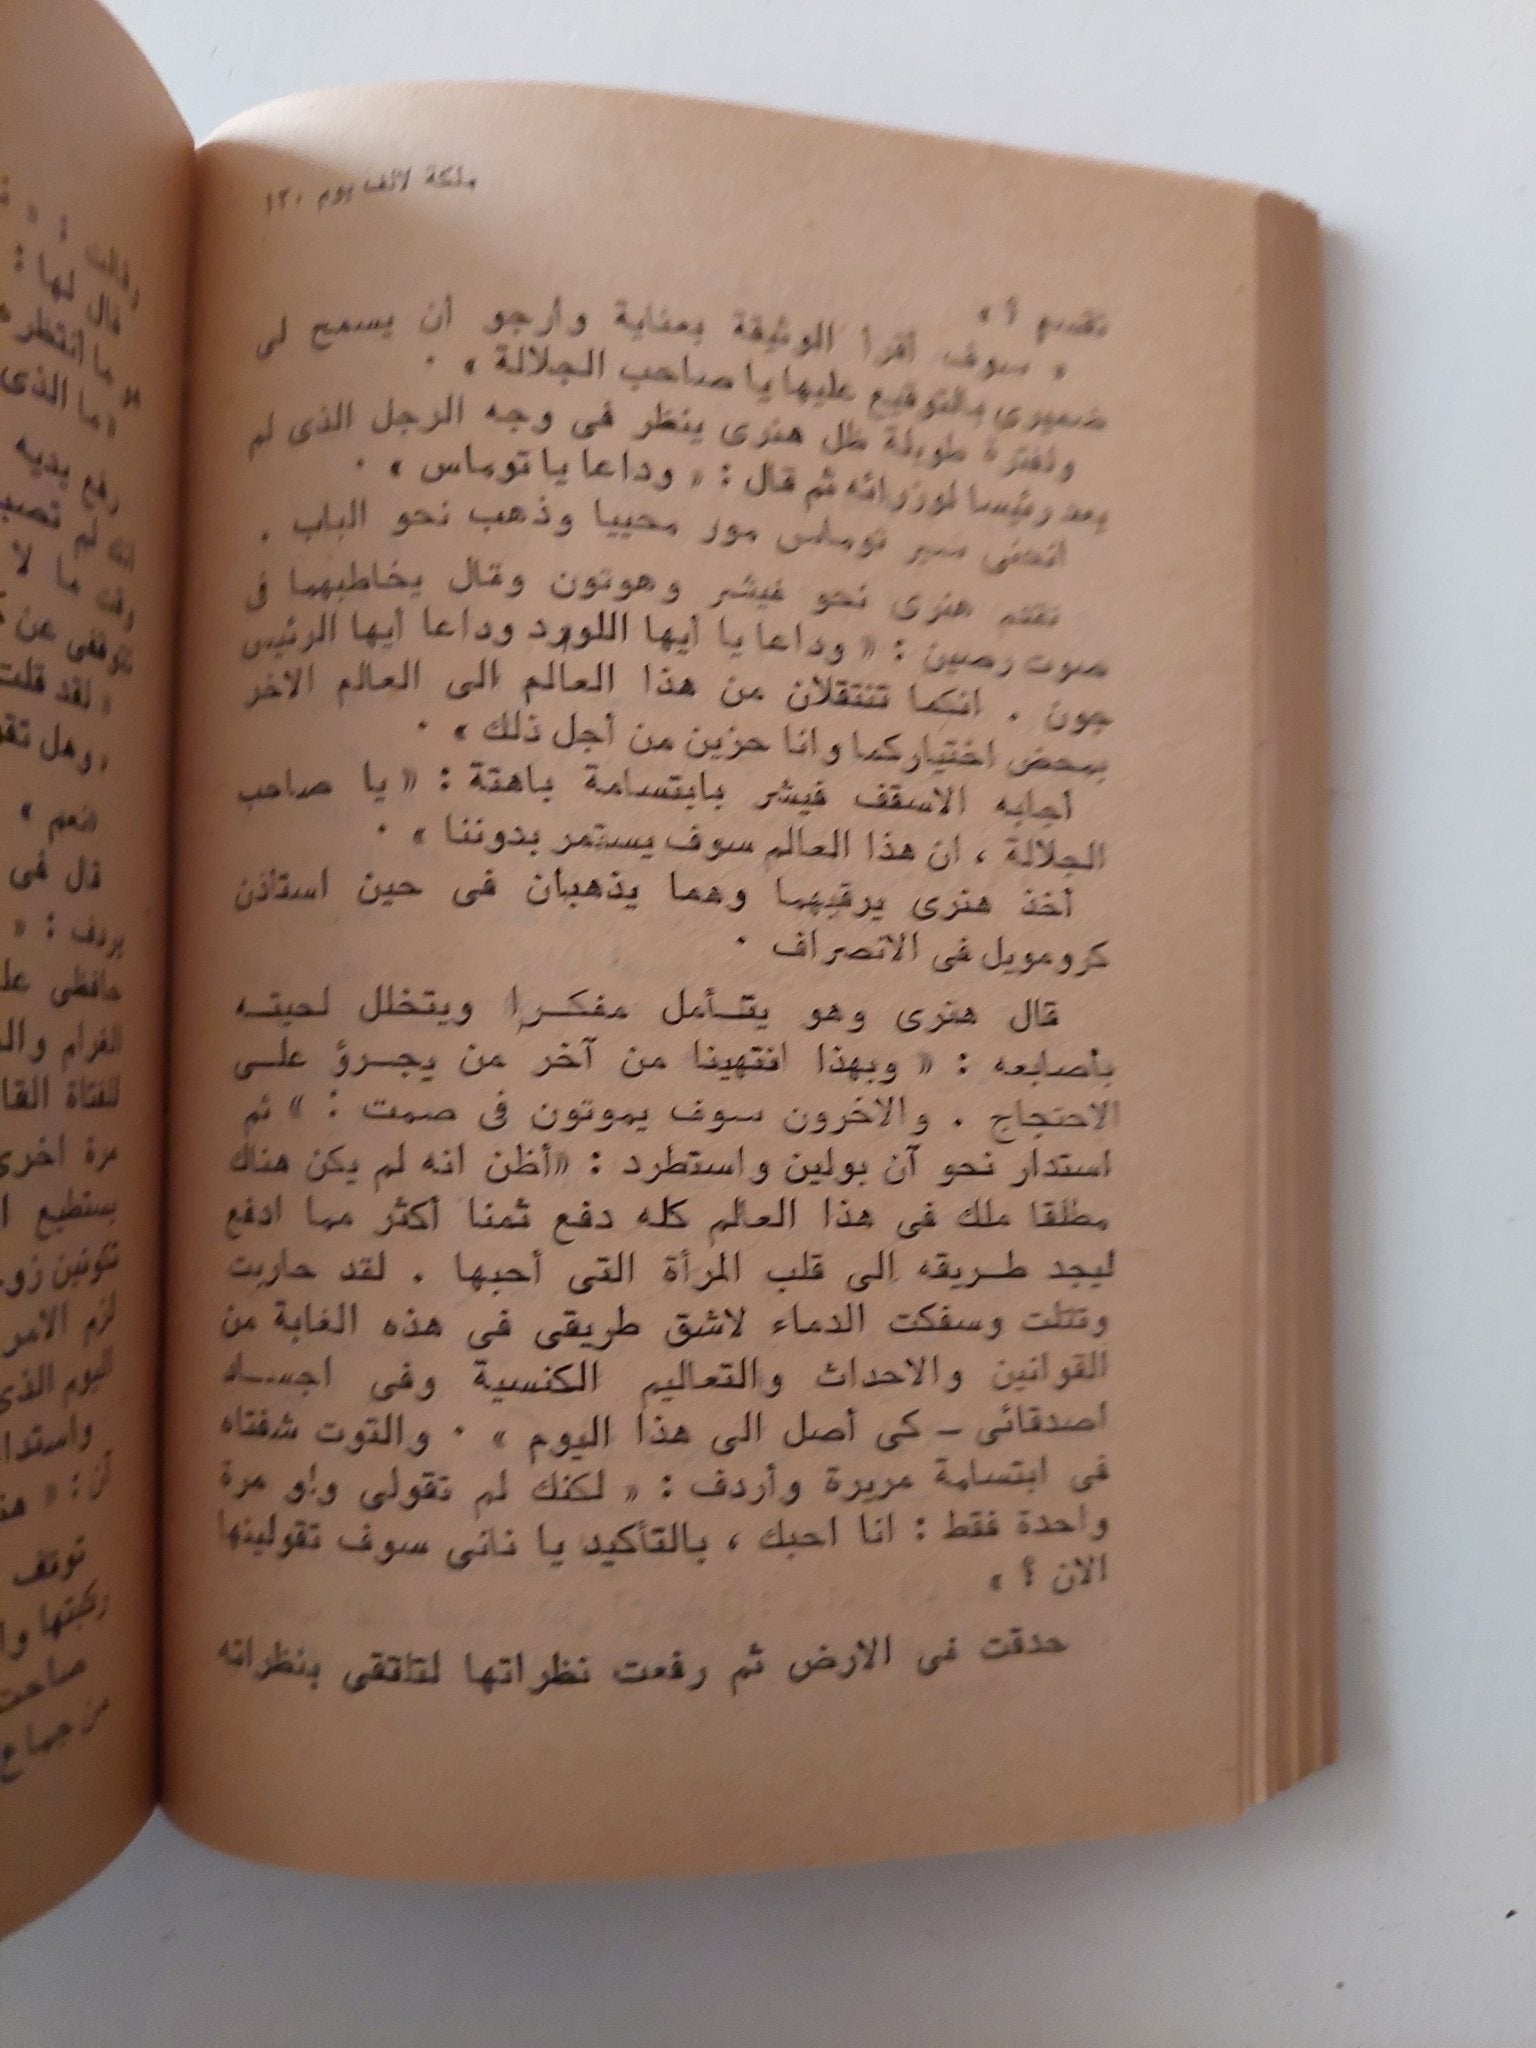 ملكة لالف يوم ١٣٠
تقسم ؟ »
« سوف أقرأ الوثيقة بعناية وأرجو أن يسمح لى
ضميرى بالتوقيع عليها يا صاحب الجلالة » .
ولفترة طويلة ظل هنرى ينظر فى وجه الرجل الذى لم
يعد رئيسا لوزرائه ثم قال : « وداعا يا توماس » .
انحنى سير توماس مور محييا وذهب نحو الباب .
تقدم هنرى نحو فيشر وهوتون وقال يخاطبهما فى
صوت رصين : « وداعا يا أيها اللورد وداعا أيها الرئيس
جون . انكما تنتقلان من هذا العالم الى العالم الاخر
بمحض اختياركما وانا حزين من أجل ذلك » .
أجابه الاسقف فيشر بابتسامة باهتة : « يا صاحب
الجلالة ، ان هذا العالم سوف يستمر بدوننا » .
أخذ هنرى يرقبهما وهما يذهبان فى حين استأذن
كرومويل فى الانصراف .
قال هنرى وهو يتـأمل مفكـرا ويتخلل لحيتـه
بأصابعه : « وبهذا انتهينا من آخر من يجـرؤ علـى
الاحتجاج . والاخرون سوف يموتون فى صمت : » ثم
استدار نحو آن بولين واستطرد : «أظن انه لم يكن هناك
مطلقا ملك فى هذا العالم كله دفع ثمنا أكثر مما ادفع
ليجد طـريقه إلى قلب المرأة التى أحبها . لقد حاربت
وقتلت وسفكت الدماء لاشق طريقى فى هذه الغابة من
القوانين والاحداث والتعاليم الكنسية وفى اجسـاد
اصدقائى – كى أصل الى هذا اليوم » . والتوت شفتاه
فى ابتسامة مريرة وأردف : « لكنك لم تقولى ولو مرة
واحدة فقط : انا احبك ، بالتأكيد يا نانى سوف تقولينها
الان ؟ »
حدقت فى الارض ثم رفعت نظراتها لتلتقى بنظراته
وقالت : «
قال لها :
هو ما انتظر
«ما الذى
رفع يديه
لم تصب
وقت ما لا
« لقد قلت
«وهل تقو
«نعم »
قال فى
يردف : «
حافظى عل
الغرام وال
للفتاة القا
مرة اخرى
يستطيع ا
تكونين زو
لزم الامر
اليوم الذى
واستدا
آن : « هن
توقف
ركبتها وا
صاحت
من جماع